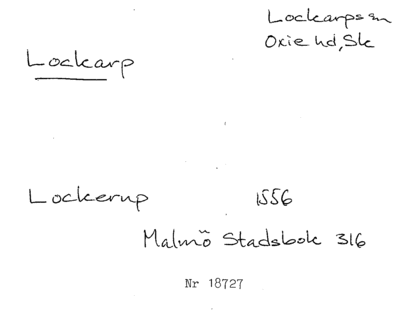 Lockarps sn
Oxie hd, Sk
Lockarp
Lockerup 1556
Malmö Stadsbok 316
Nr 18727